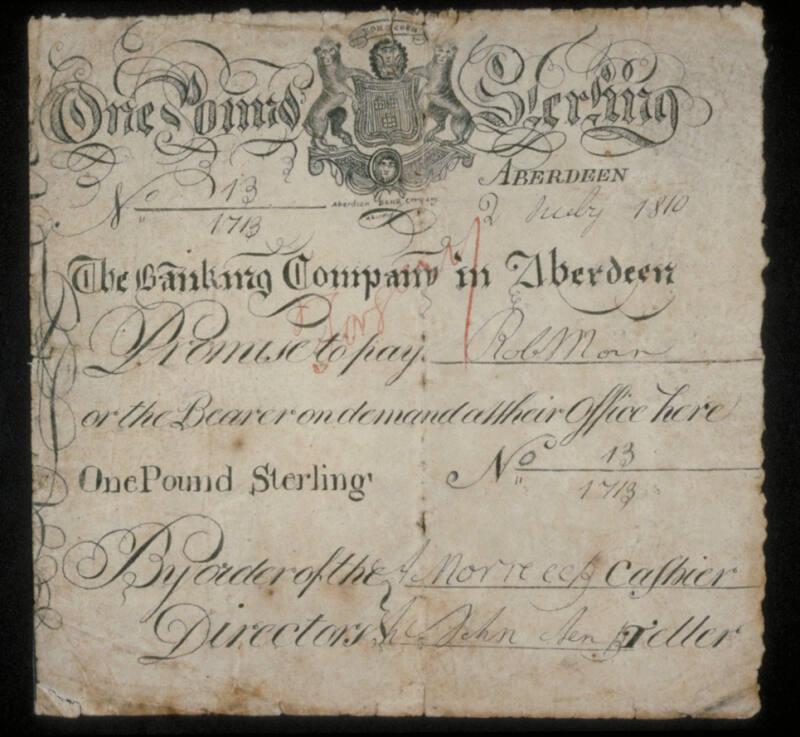 BON ACCORD
One Pound Sterling
Aberdeen Bank Company
ABERDEEN
No 13
1713
2 July 1810
The Banking Company in Aberdeen
Forgery
Promise to pay Rob Moir
or the Bearer on demand at their Office here
One Pound Sterling
No 13
1713
By order of the Cashier
Directors John Teller